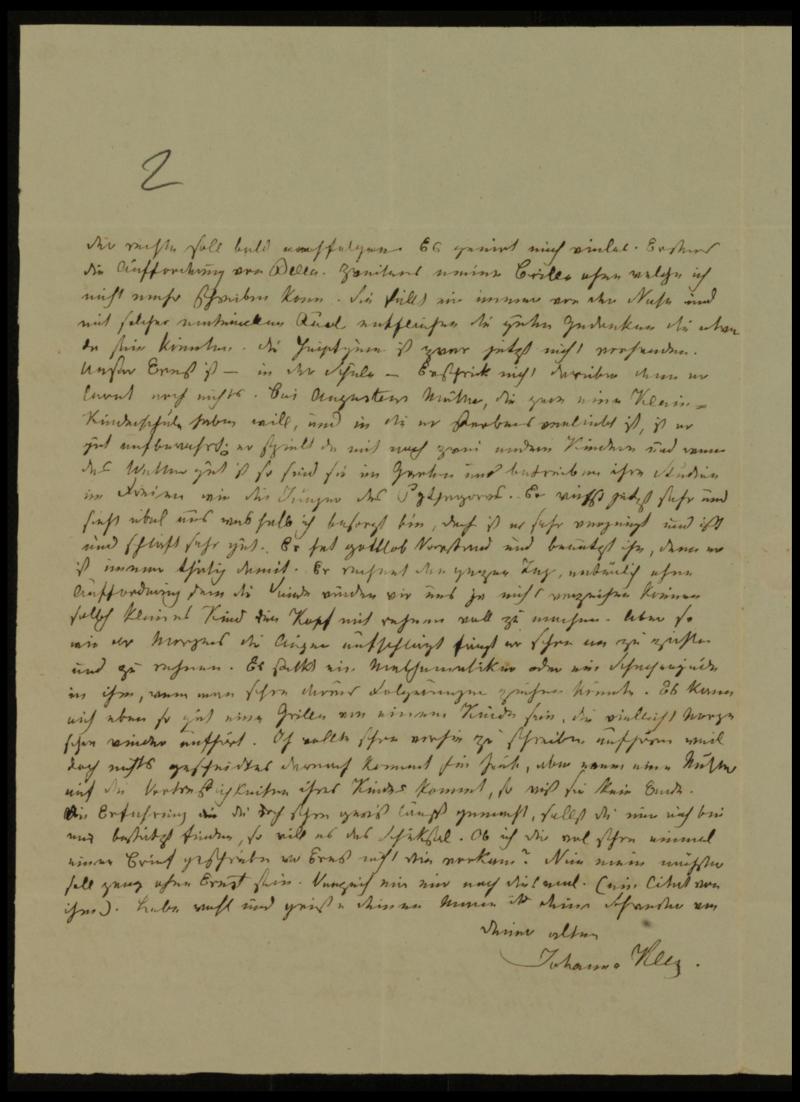 2
der rechte soll bald nachfolgen. Es genirt mich vieles. Erstens
die Aufforderung von Bella. Zweitens meine Brille ohne welche ich
nicht mehr schreiben kann. Sie fällt mir immer von der Nase und
mit solcher Quel entfliehen die guten Gedanken die etwa
da sein könnten. die ist zwar jetzt nicht vorhanden.
Unser Ernst ist — in der Schule — Erschrick nicht darüber denn er
lernt noch nichts. Bei Augustens Mutter, die gern eine Klein-
Kinderschule haben will, und in die er verliebt ist, ist er
gut aufbewahrt; er spielt da mit noch zwei andern Kindern und wenn
das Wetter gut ist so sind sie im Garten und betreiben ihre Studien
im Freien wie die Jünger des Pythagoras. Er wächst jetzt sehr und
sieht übel aus weshalb ich besorgt bin, doch ist er sehr vergnügt und ißt
und schläft sehr gut. Er hat gottlob Verstand und benutzt ihn, denn er
ist immer thätig damit. Er rechnet den ganzen Tag, natürlich ohne
Aufforderung denn die Sünde würden wir uns ja nicht verzeihen können
solch kleines Kind den Kopf mit rechnen voll zu machen. Aber so
wie er Morgens die Augen aufschlägt fängt er schon an zu zählen
und zu rechnen. Es steckt ein Mathematiker oder ein Schacherjude
in ihm, wenn man schon daraus Folgerungen ziehen könnte. Es kann
auch eben so gut eine Grille von einem Kinde sein, die vielleicht Morgen
schon wieder aufhört. Ich wollte schon vorhin zu schreiben aufhören weil
doch nichts gescheidtes darnach kommt für heute, aber wenn eine Mutter
auf die Vortrefflichkeiten ihres Kindes kommt, so weiß sie kein Ende.
Die Erfahrung die doch schon gewiß längst gemacht, sollst du nun auch bei
mir bestätigt finden, so will es das Schicksal. Ob ich dir wol schon einmal
einen Brief geschrieben wo Ernst nicht drin vorkam? Nein mein nächster
soll ganz ohne Ernst sein. Verzeih mir nur noch diesmal. (ein Citat von
ihm). Lebe wohl und grüße deinen Mann deine Schwester von
deiner alten
Johanna Klez.